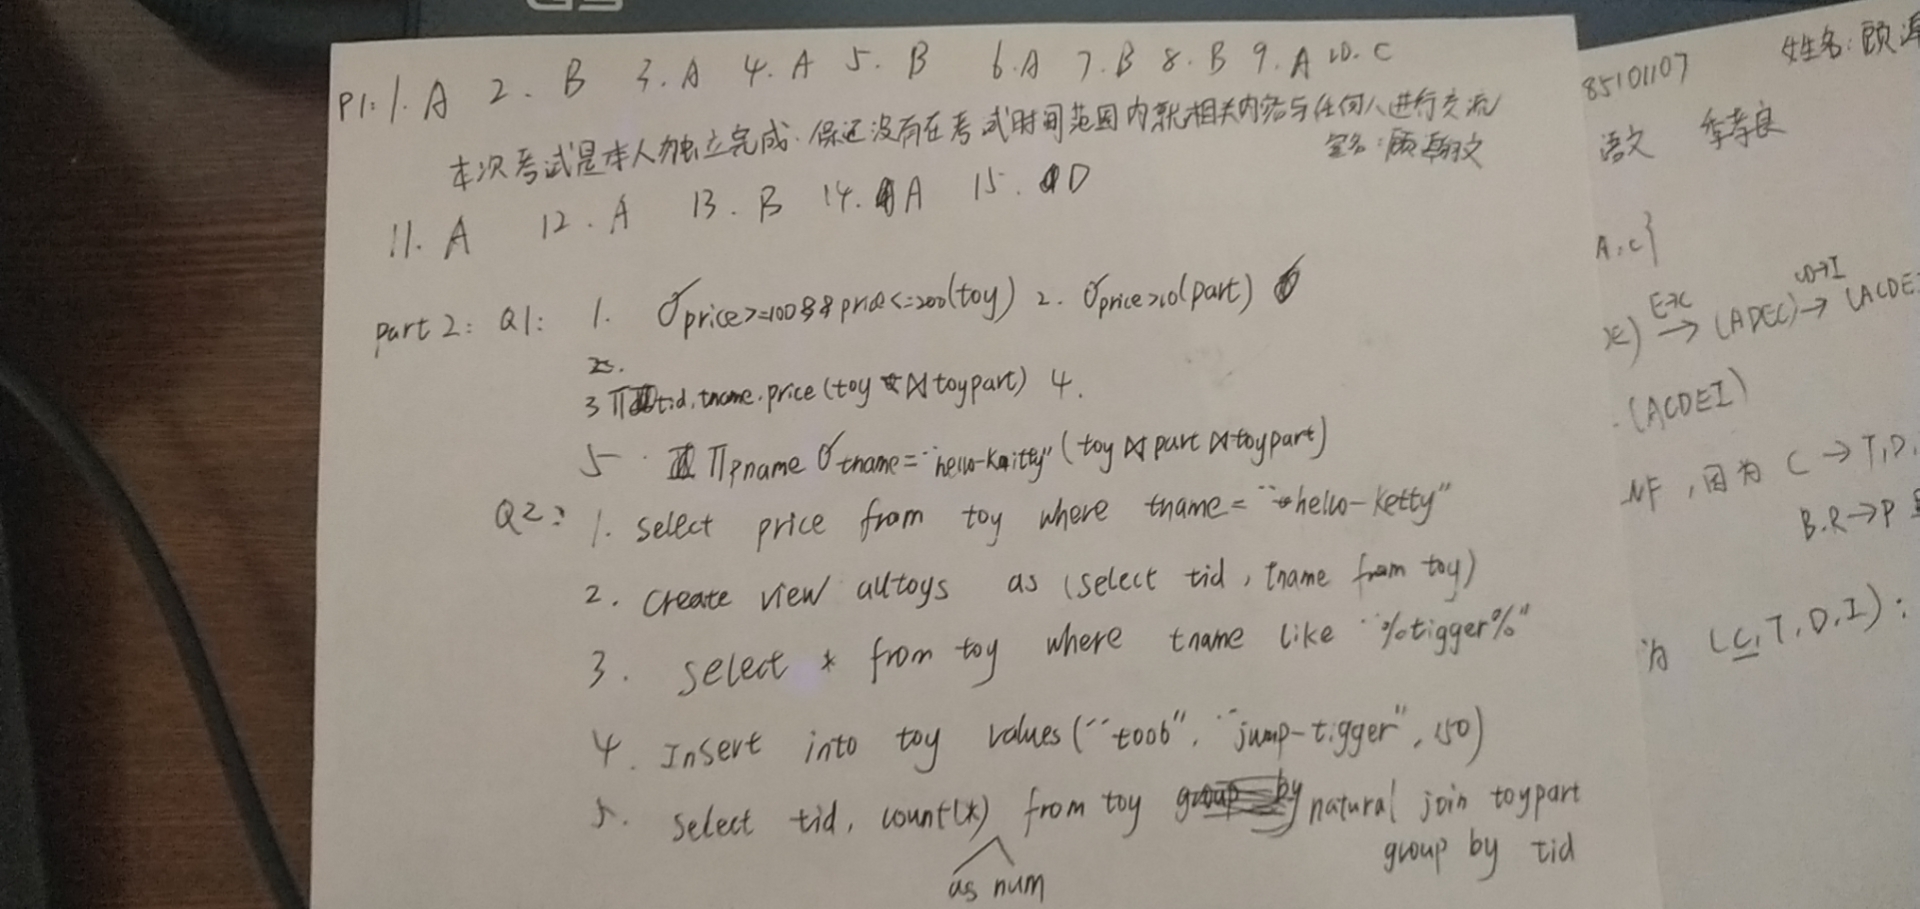 P1: 1. A 2. B 3. A 4. A 5. B 6. A 7. B 8. B 9. A 10. C
本次考试是本人独立完成. 保证没有在考试时间范围内就相关内容与任何人进行交流
签名: 顾瀚文
11. A 12. A 13. B 14. A 15. D
Part 2: Q1: 1. σprice>=100&&price<=200(toy) 2. σprice>10(part)
3 Πtid.tname.price(toy ⋈ toypart) 4.
5. Πpname σtname="hello-kitty"(toy ⋈ part ⋈ toypart)
Q2: 1. select price from toy where tname = "hello-ketty"
2. create view alltoys as (select tid, tname from toy)
3. select * from toy where tname like "%tigger%"
4. Insert into toy values("t006", "jump-tigger", 150)
5. select tid, count(*) from toy natural join toypart
group by tid
as num
85101107 姓名: 顾
语文
A.C}
E→C CD→I
→ (ADEC) → (ACDE
(ACDEI)
NF, 因为 C → T,D,
B.R→P
为 (C,T,D,I):